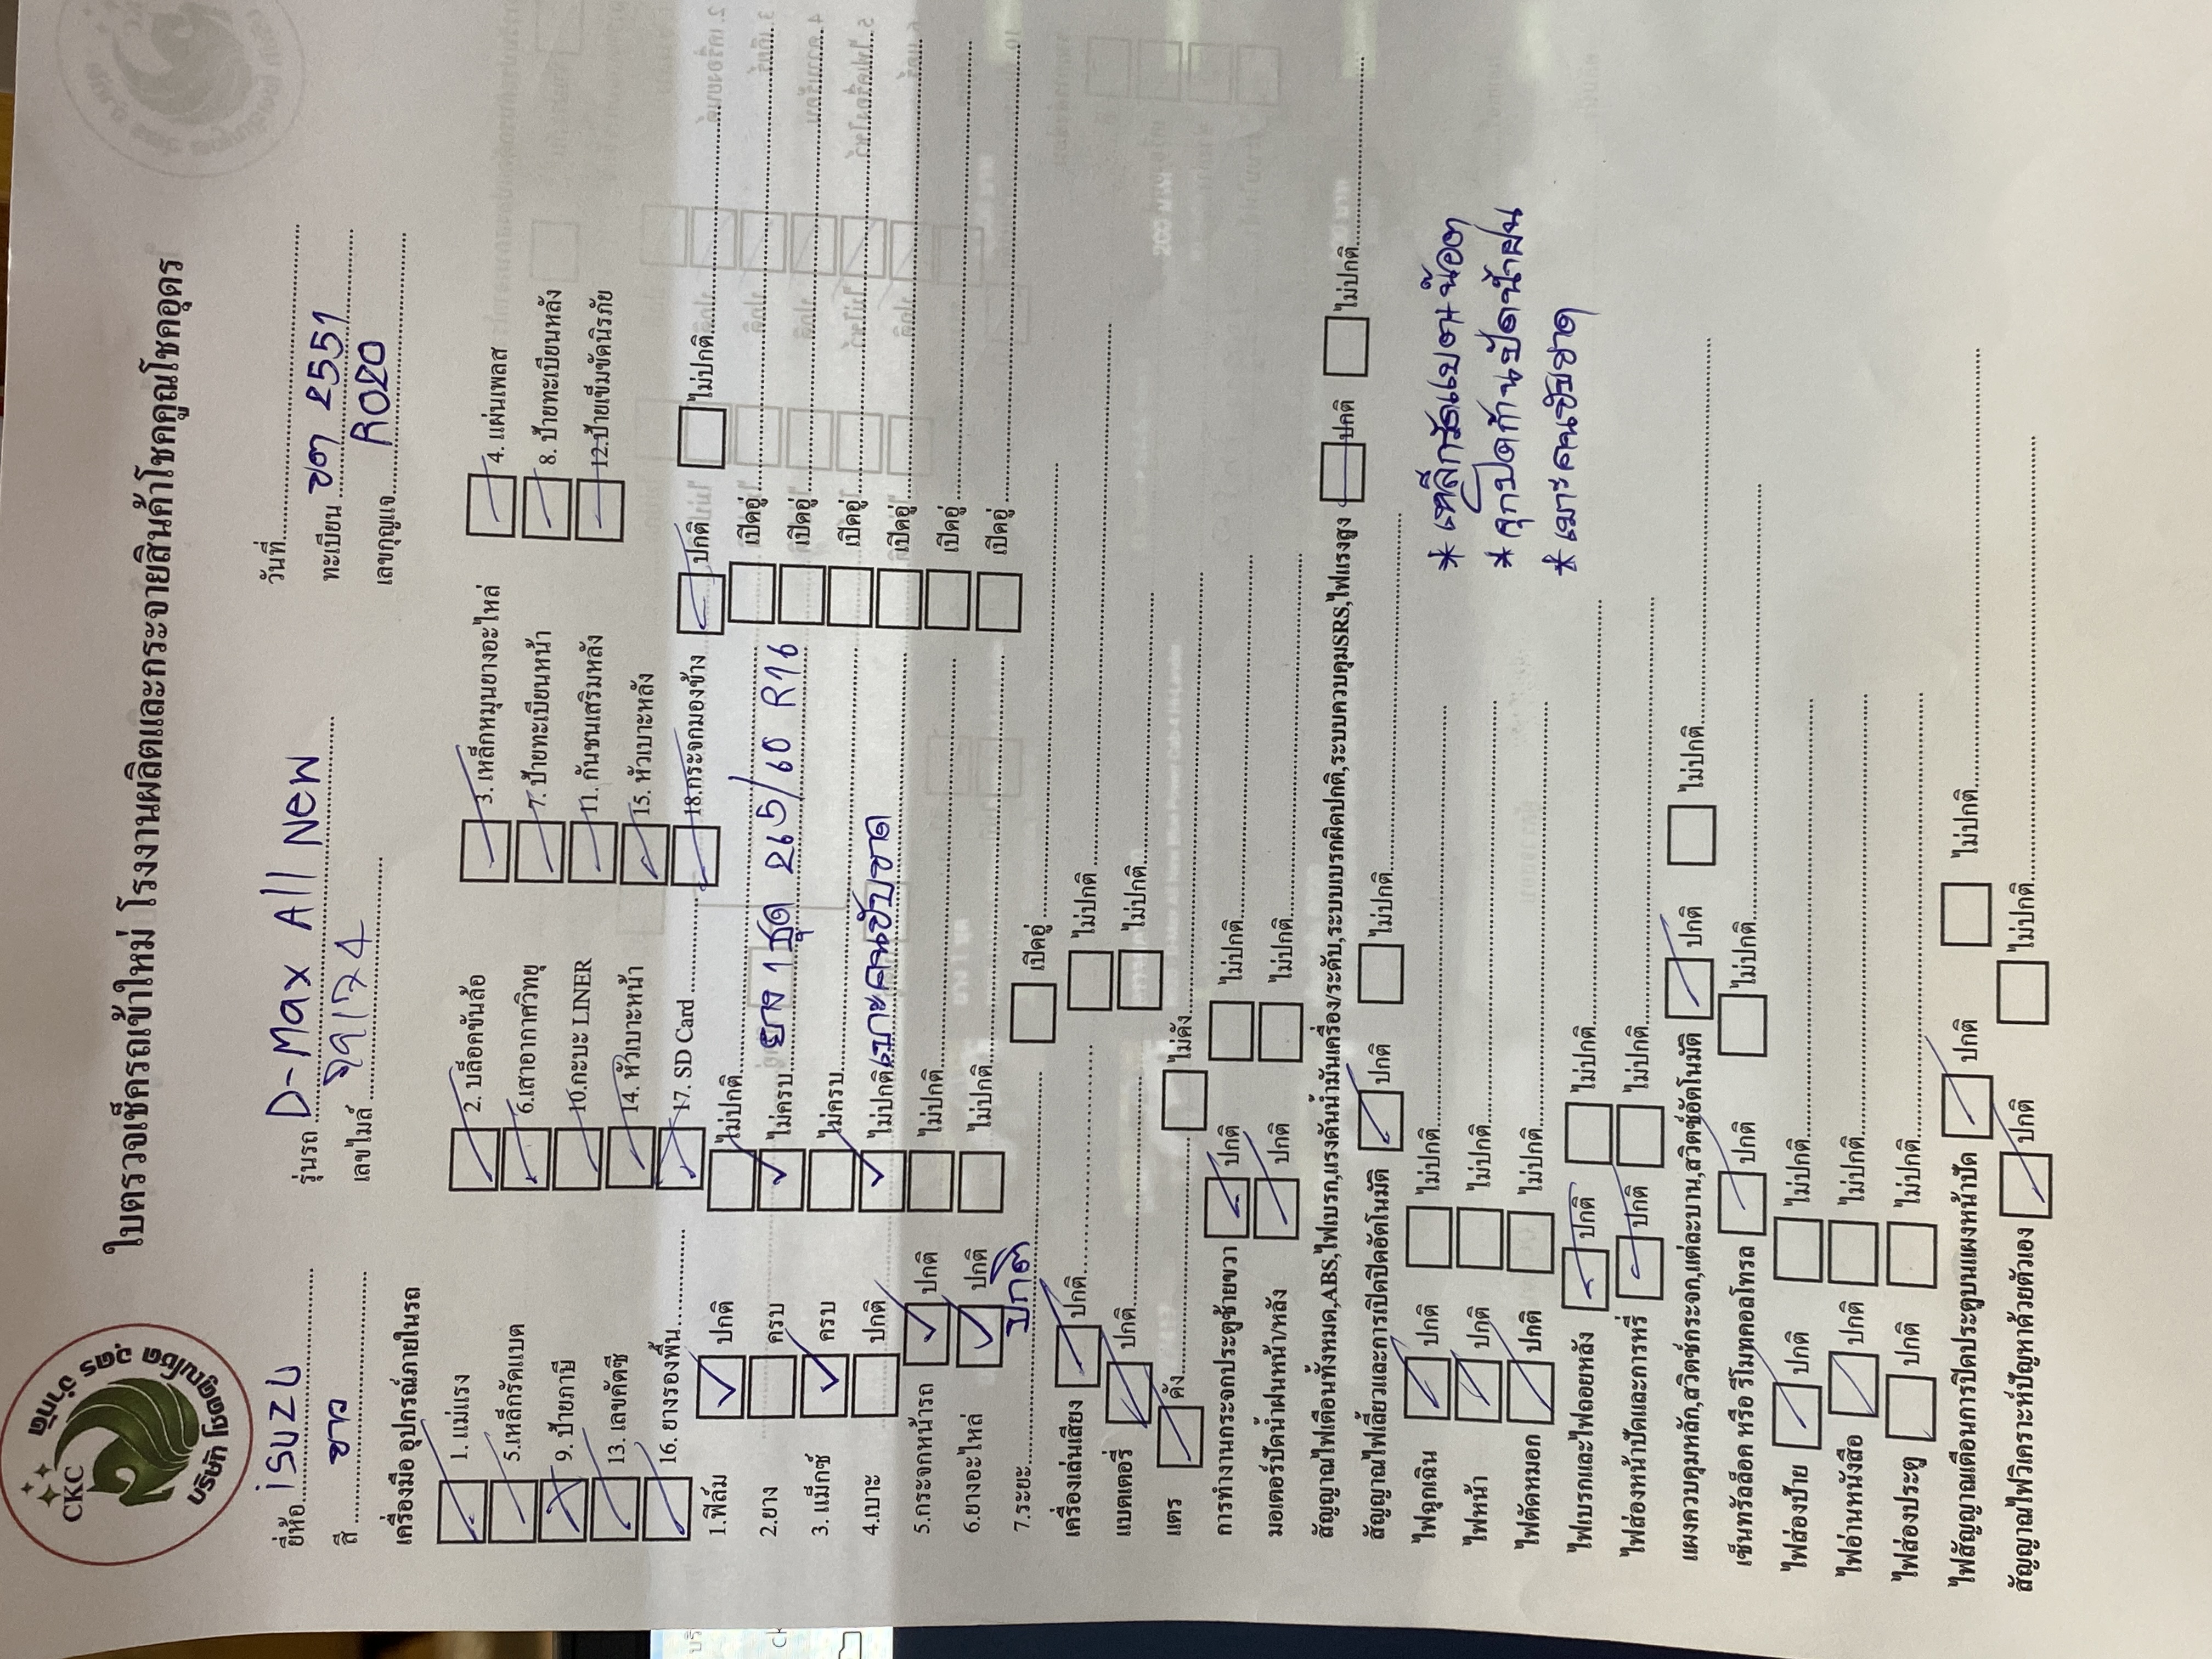 CKC
บริษัท โชคคูณโชค อุดร จำกัด
ใบตรวจเช็ครถเข้าใหม่ โรงงานผลิตและกระจายสินค้าโชคคูณโชคอุดร
ยี่ห้อ iSUZU รุ่นรถ D-Max All New วันที่
สี ขาว เลขไมล์ ทะเบียน ขต 2551
เลขกุญแจ R020
เครื่องมือ อุปกรณ์ภายในรถ
1. แม่แรง 2. บล็อคขันล้อ 3. เหล็กหมุนยางอะไหล่ 4. แผ่นเพลส
5.เหล็กรัดแบต 6.เสาอากาศวิทยุ 7. ป้ายทะเบียนหน้า 8. ป้ายทะเบียนหลัง
9. ป้ายภาษี 10.กะบะ LINER 11. กันชนเสริมหลัง 12.ป้ายเข็มขัดนิรภัย
13. เลขคัตซี 14. หัวเบาะหน้า 15. หัวเบาะหลัง
16. ยางรองพื้น 17. SD Card 18.กระจกมองข้าง ปกติ ไม่ปกติ
1.ฟิล์ม ปกติ ไม่ปกติ เปิดอู่
2.ยาง ครบ ไม่ครบ ยาง 1 ชุด 265/60 R16 เปิดอู่
3. แม็กซ์ ครบ ไม่ครบ เปิดอู่
4.เบาะ ปกติ ไม่ปกติ เบาะคนขับขาด เปิดอู่
5.กระจกหน้ารถ ปกติ ไม่ปกติ เปิดอู่
6.ยางอะไหล่ ปกติ ไม่ปกติ เปิดอู่
7.ระยะ ปกติ เปิดอู่
เครื่องเล่นเสียง ปกติ ไม่ปกติ
แบตเตอรี่ ปกติ ไม่ปกติ
แตร ดัง ไม่ดัง
การทำงานกระจกประตูซ้ายขวา ปกติ ไม่ปกติ
มอเตอร์ปัดน้ำฝนหน้า/หลัง ปกติ ไม่ปกติ
สัญญาณไฟเตือนทั้งหมด,ABS,ไฟเบรก,แรงดันน้ำมันเครื่อง/ระดับ,ระบบเบรกผิดปกติ,ระบบควบคุมSRS,ไฟแรงสูง ปกติ ไม่ปกติ
สัญญาณไฟเลี้ยวและการเปิดปิดอัตโนมัติ ปกติ ไม่ปกติ
ไฟฉุกเฉิน ปกติ ไม่ปกติ
* เหล็กรัดแบต+น๊อต
ไฟหน้า ปกติ ไม่ปกติ
* จุกปิดก้านปัดน้ำฝน
ไฟตัดหมอก ปกติ ไม่ปกติ
* เบาะคนขับขาด
ไฟเบรกและไฟถอยหลัง ปกติ ไม่ปกติ
ไฟส่องหน้าปัดและการหรี่ ปกติ ไม่ปกติ
แผงควบคุมหลัก,สวิตช์กระจก,แต่ละบาน,สวิตช์อัตโนมัติ ปกติ ไม่ปกติ
เซ็นทรัลล็อค หรือ รีโมทคอลโทรล ปกติ ไม่ปกติ
ไฟส่องป้าย ปกติ ไม่ปกติ
ไฟอ่านหนังสือ ปกติ ไม่ปกติ
ไฟส่องประตู ปกติ ไม่ปกติ
ไฟสัญญาณเตือนการปิดประตูบนแผงหน้าปัด ปกติ ไม่ปกติ
สัญญาณไฟวิเคราะห์ปัญหาด้วยตัวเอง ปกติ ไม่ปกติ